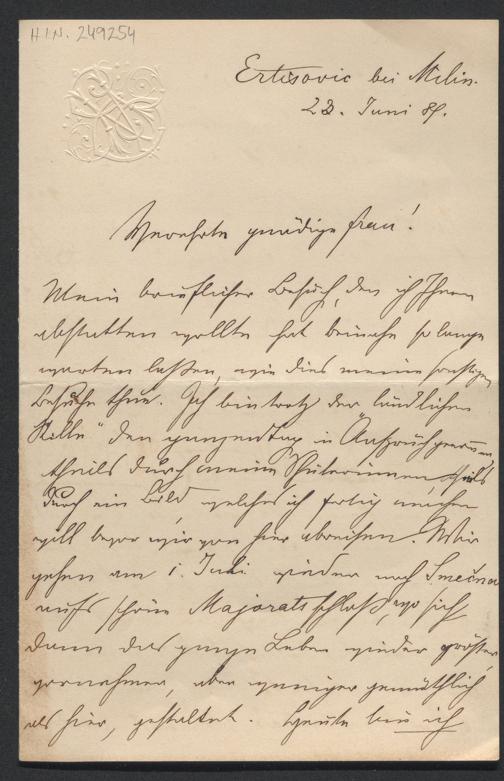 H.I.N. 249254
Ertisovic bei Milin.
23. Juni 89.
Verehrte gnädige Frau!
Mein brieflicher Besuch, den ich Ihnen
abstatten wollte hat beinahe so lange
warten lassen, wie dies meine sonstigen
Besuche thun. Ich bin trotz der „ländlichen
Stille" den ganzen Tag in Anspruch genommen
theils durch meine Schülerinnen theils
durch ein Bild, welches ich fertig machen
will bevor wir von hier abreisen. Wir
gehen am 1. Juli wieder nach Smečna
aufs schöne Majoratsschloß, wo sich
dann das ganze Leben wieder größer,
vornehmer, aber weniger gemüthlich
als hier, gestaltet. Heute bin ich